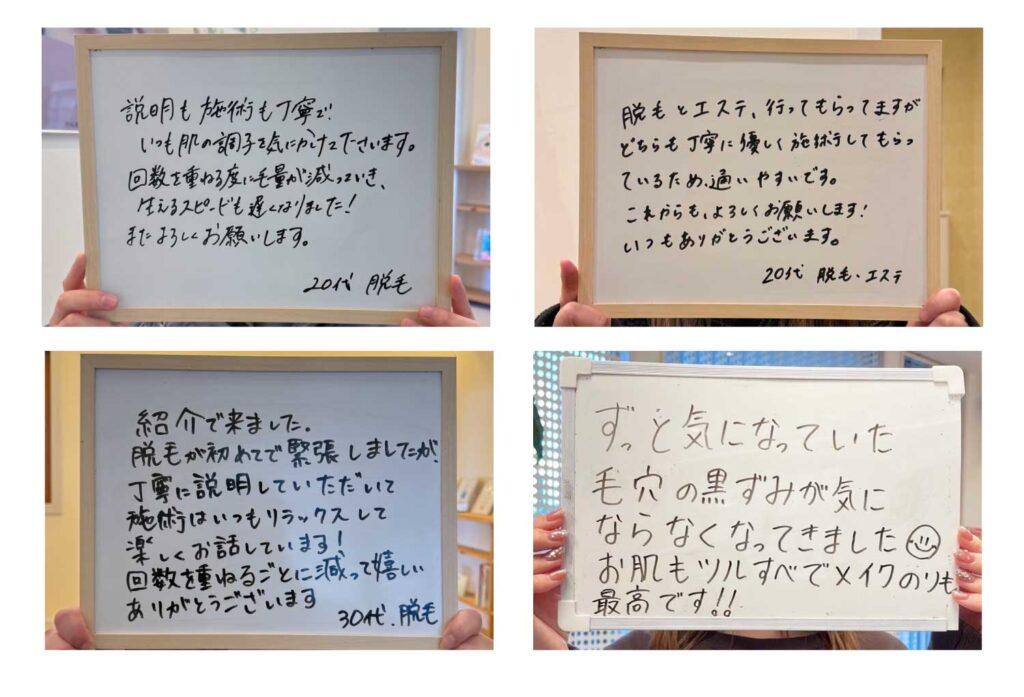 説明も施術も丁寧で
いつも肌の調子を気にかけて下さいます。
回数を重ねる度に毛量が減っていき、
生えるスピードも遅くなりました!
またよろしくお願いします。
20代 脱毛
脱毛とエステ、行ってもらってますが
どちらも丁寧に優しく施術してもらっ
ているため、通いやすいです。
これからも、よろしくお願いします!
いつもありがとうございます。
20代 脱毛・エステ
紹介で来ました。
脱毛が初めてで緊張しましたが、
丁寧に説明していただいて
施術はいつもリラックスして
楽しくお話しています!
回数を重ねるごとに減って嬉しい
ありがとうございます
30代、脱毛
ずっと気になっていた
毛穴の黒ずみが気に
ならなくなってきました
お肌もツルすべでメイクのりも
最高です!!